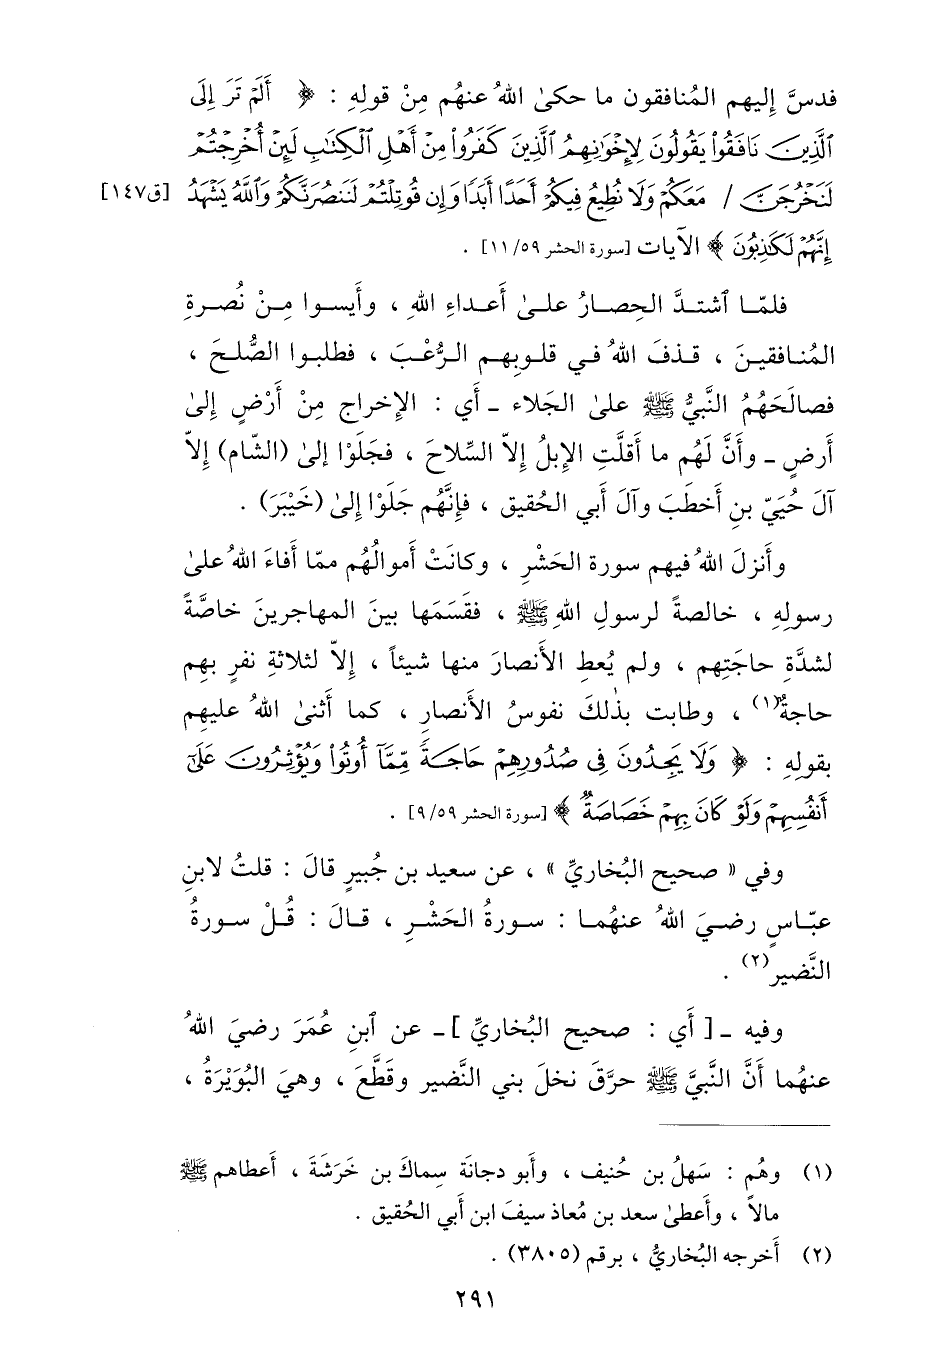 فدسَّ إليهم المُنافقون ما حكىٰ اللهُ عنهُم مِنْ قولِهِ : ﴿ أَلَمْ تَرَ إِلَى
ٱلَّذِينَ نَافَقُوا۟ يَقُولُونَ لِإِخْوَٰنِهِمُ ٱلَّذِينَ كَفَرُوا۟ مِنْ أَهْلِ ٱلْكِتَٰبِ لَئِنْ أُخْرِجْتُمْ
لَنَخْرُجَنَّ / مَعَكُمْ وَلَا نُطِيعُ فِيكُمْ أَحَدًا أَبَدًا وَإِن قُوتِلْتُمْ لَنَنصُرَنَّكُمْ وَٱللَّهُ يَشْهَدُ [ق١٤٧]
إِنَّهُمْ لَكَٰذِبُونَ ﴾ الآيات [سورة الحشر ٥٩/ ١١] .
فلمّا ٱشتدَّ الحِصارُ علىٰ أَعداءِ اللهِ ، وأَيسوا مِنْ نُصرةِ
المُنافقينَ ، قذفَ اللهُ في قلوبِهم الرُّعْبَ ، فطلبوا الصُّلحَ ،
فصالَحَهُمُ النَّبيُّ ﷺ علىٰ الجَلاء ـ أَي : الإخراج مِنْ أَرْضٍ إلىٰ
أَرضٍ ـ وأَنَّ لَهُم ما أَقلَّتِ الإبلُ إلاّ السِّلاحَ ، فجَلَوْا إلىٰ (الشّام) إلاّ
آلَ حُيَيّ بنِ أَخطَبَ وآلَ أَبي الحُقيق ، فإنَّهُم جَلَوْا إلىٰ (خَيْبَرَ) .
وأَنزلَ اللهُ فيهم سورة الحَشْرِ ، وكانَتْ أَموالُهُم ممّا أَفاءَ اللهُ علىٰ
رسولِهِ ، خالصةً لرسولِ اللهِ ﷺ ، فقَسَمَها بينَ المهاجرينَ خاصَّةً
لشدَّةِ حاجَتِهم ، ولم يُعطِ الأَنصارَ منها شيئاً ، إلاّ لثلاثةِ نفرٍ بهم
حاجةٌ(١) ، وطابت بذٰلكَ نفوسُ الأَنصارِ ، كما أَثنىٰ اللهُ عليهم
بقولِهِ : ﴿ وَلَا يَجِدُونَ فِى صُدُورِهِمْ حَاجَةً مِّمَّآ أُوتُوا۟ وَيُؤْثِرُونَ عَلَىٰٓ
أَنفُسِهِمْ وَلَوْ كَانَ بِهِمْ خَصَاصَةٌ ﴾ [سورة الحشر ٥٩/ ٩] .
وفي « صحيح البُخاريِّ » ، عن سعيد بن جُبيرٍ قالَ : قلتُ لابنِ
عبّاسٍ رضيَ اللهُ عنهُما : سورةُ الحَشْرِ ، قالَ : قُلْ سورةُ
النَّضيرِ(٢) .
وفيه ـ [ أَي : صحيح البُخاريِّ ] ـ عن ٱبنِ عُمَرَ رضيَ اللهُ
عنهُما أَنَّ النَّبيَّ ﷺ حرَّقَ نخلَ بني النَّضير وقَطَّعَ ، وهيَ البُوَيْرَةُ ،
(١) وهُم : سَهلُ بن حُنيف ، وأَبو دجانَة سِماكَ بن خَرَشَةَ ، أَعطاهم ﷺ
مالاً ، وأَعطىٰ سعد بن مُعاذ سيفَ ابن أَبي الحُقيق .
(٢) أَخرجه البُخاريُّ ، برقم (٣٨٠٥) .
٢٩١